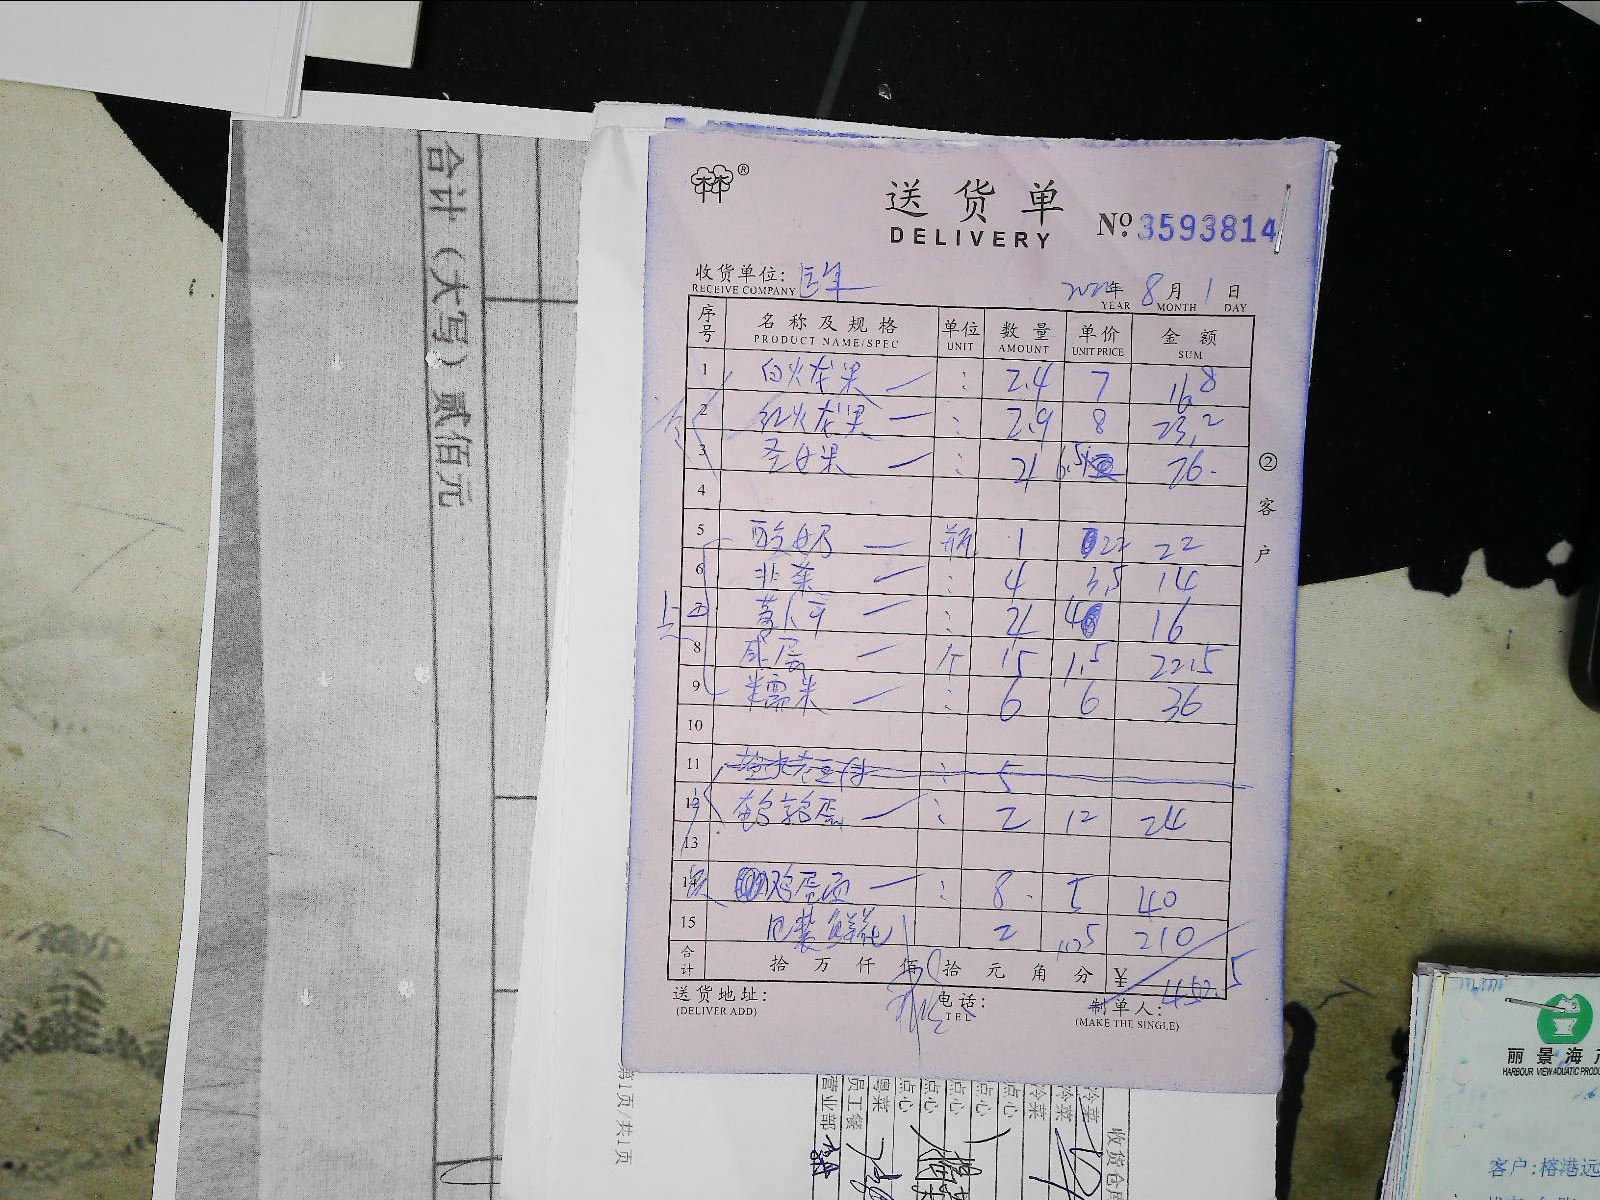 合计（大写）贰佰元
林®
送货单
DELIVERY
№ 3593814
收货单位：
RECEIVE COMPANY
年 8月 1日
YEAR MONTH DAY
序号 名称及规格 单位 数量 单价 金额
PRODUCT NAME/SPEC UNIT AMOUNT UNIT PRICE SUM
1 白火龙果 : 2.4 7 16.8
2 红火龙果 : 2.9 8 23.2
3 圣女果 : 4 6.5 26.
4
5 酸奶 瓶 1 22 22
6 韭菜 : 4 3.5 14
7 : 4 4 16
8 咸蛋 个 15 1.5 22.5
9 糯米 : 6 6 36
10
11 : 5
12 鹌鹑蛋 : 2 12 24
13
14 鸡蛋面 : 8 5 40
15 包装鲜花 2 105 210
合计 拾万仟佰拾元角分 ¥ 450.5
送货地址：
(DELIVER ADD)
电话：
TEL
制单人：
(MAKE THE SINGLE)
②客户
第1页/共1页
营业部
员工餐
粤菜
点心
点心
点心
点心
点心
冷菜
冷菜
冷菜
丽景海
HARBOUR VIEW AQUATIC PRODU
客户：榕港远